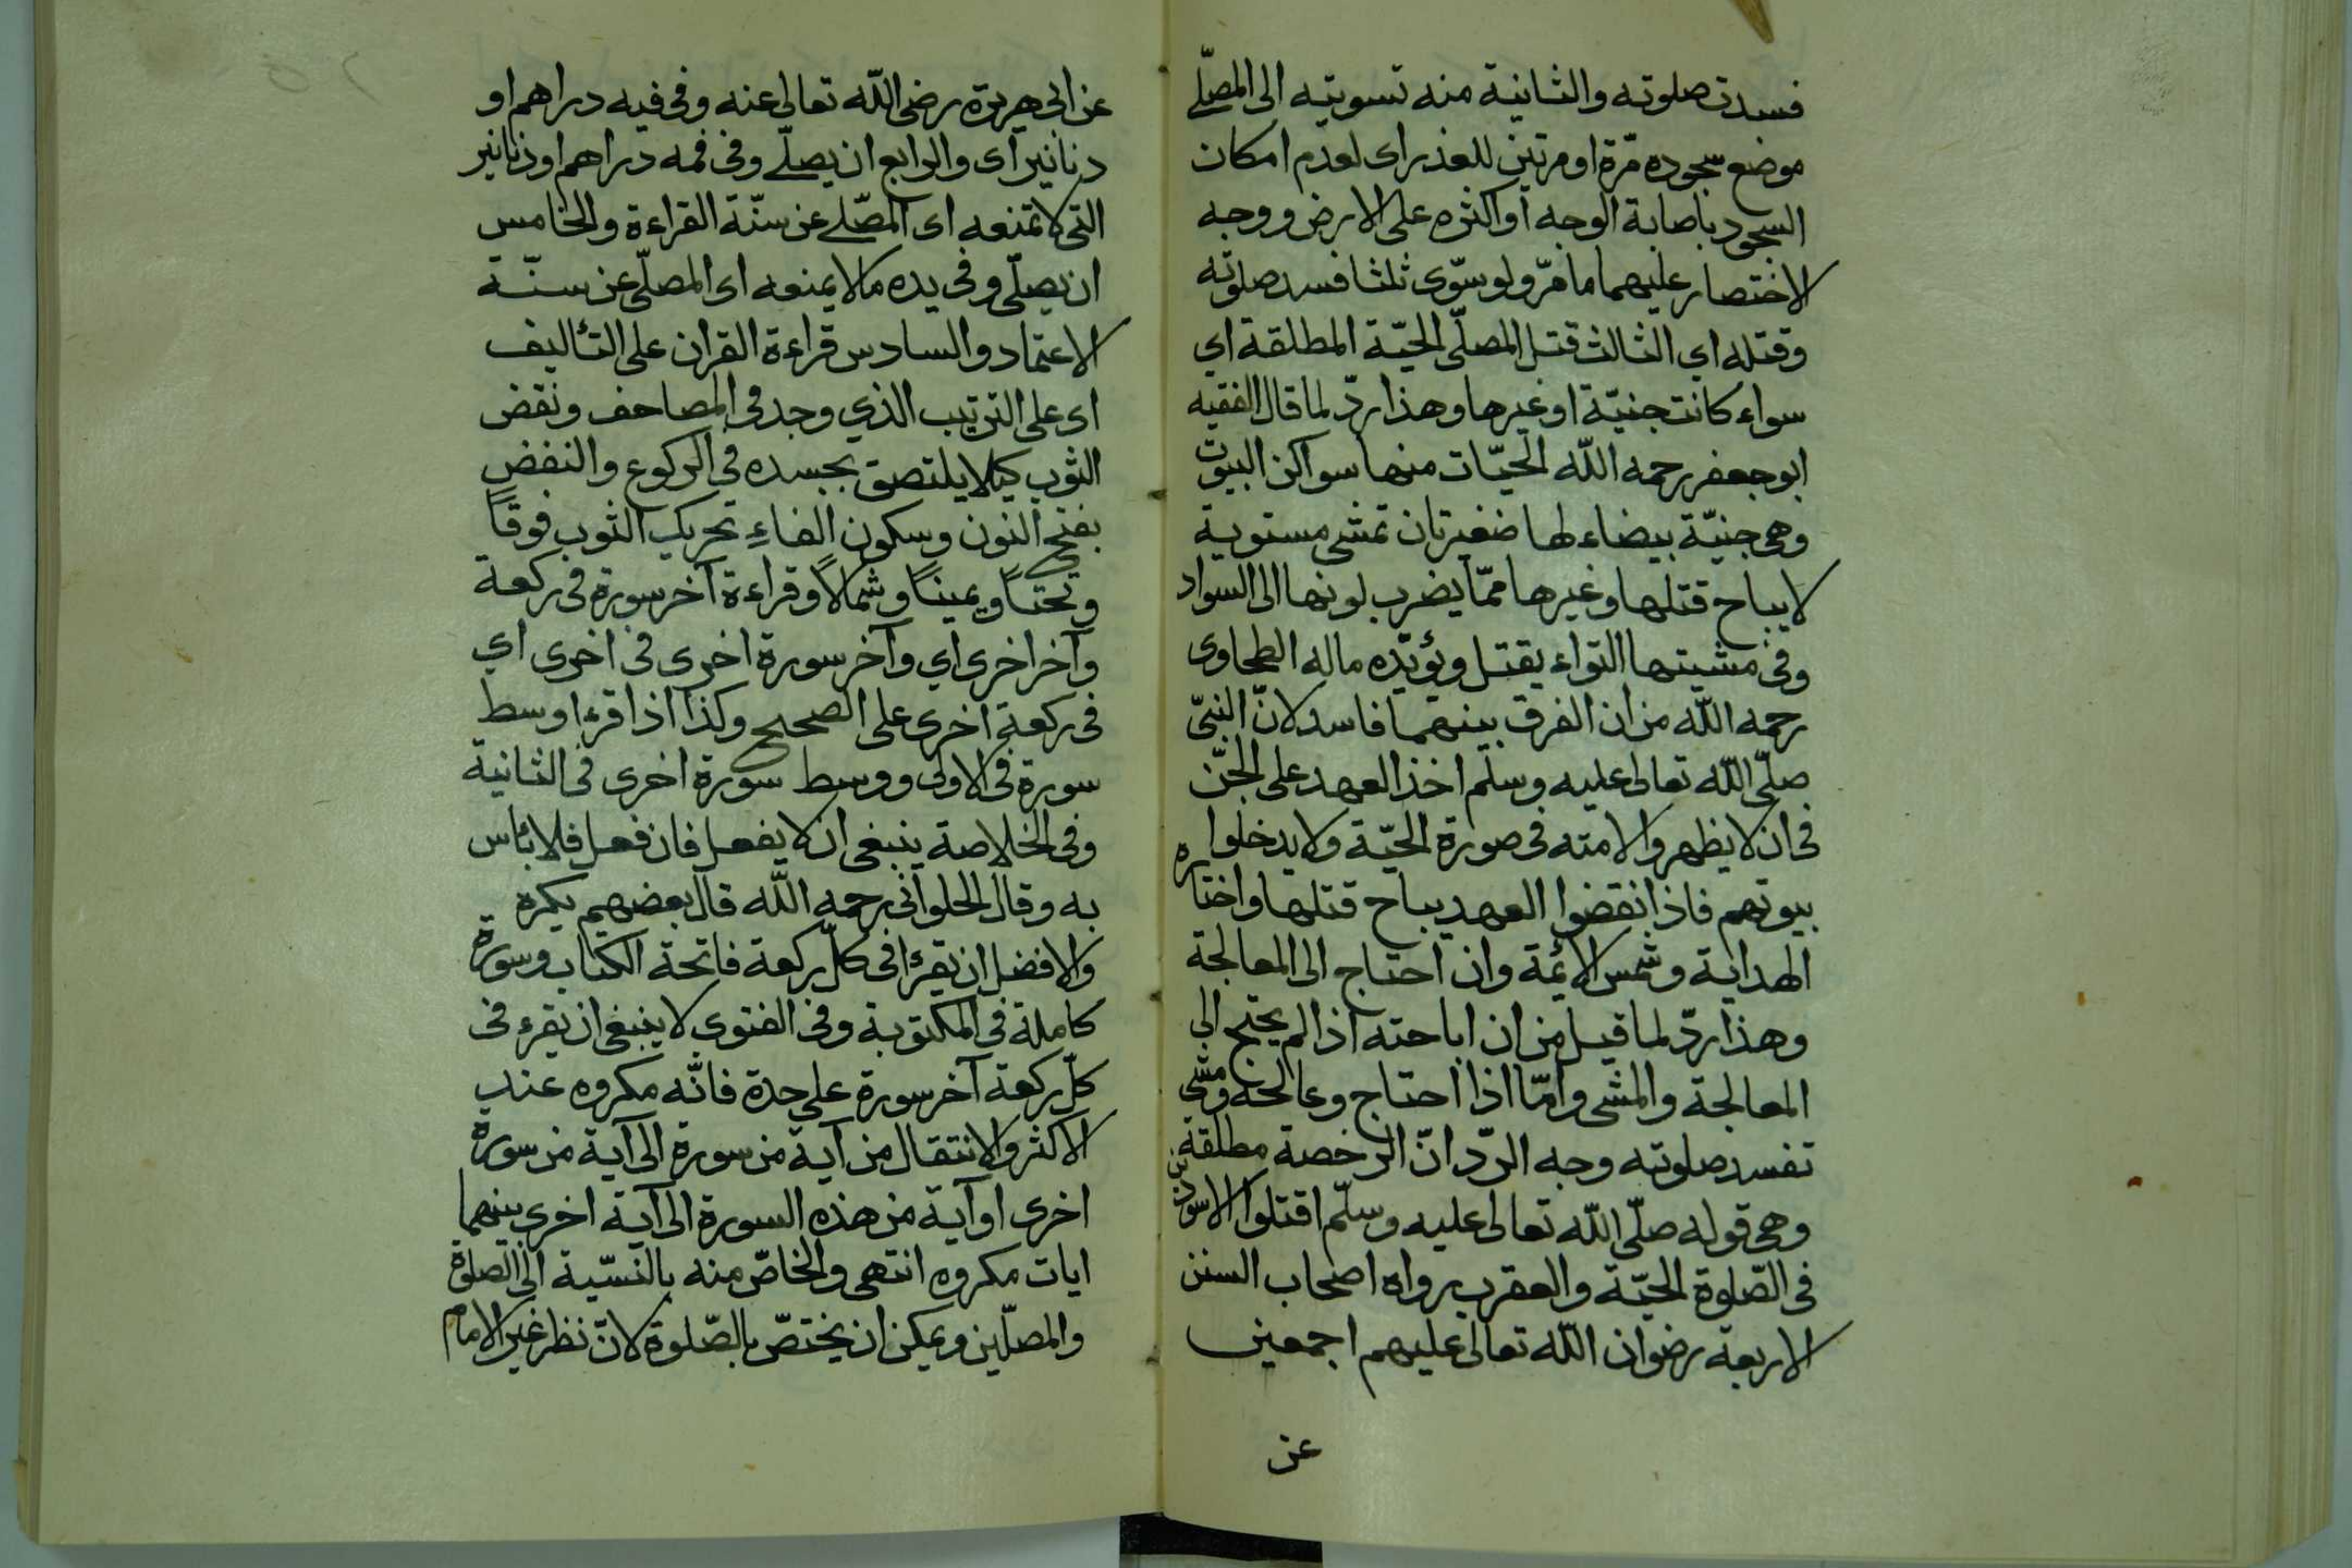 فسدت صلوته والثانية منه تسويته الى المصلّى
موضع سجوده مّرة او مرتين للعذر اى لعدم امكان
السجود باصابة الوجه او اكثره على الارض ووجه
الاختصار عليهما ما مرّ ولو سوّى ثلثا فسد صلوته
وقتله اي الثالث قتل المصلّى الحيّة المطلقة اي
سواء كانت جنيّة او غيرها وهذا ردّ لما قال الفقيه
ابو جعفر رحمه اللّه الحيّات منها سواكن البيوت
وهى جنيّة بيضاء لها ضفيرتان تمشى مستوية
لا يباح قتلها وغيرها ممّا يضرب لونها الى السواد
وفى مشيتها التواء يقتل ويؤيّده ماله الطحاوى
رحمه اللّه من ان الفرق بينهما فاسد لانّ النبىّ
صلّى اللّه تعالى عليه وسلّم اخذ العهد على الجنّ
فى ان لا يظهروا لامته فى صورة الحيّة ولا يدخلوا
بيوتهم فاذا نقضوا العهد يباح قتلها واختاره
الهداية وشمس الائمة وان احتاج الى المعالجة
وهذا ردّ لما قيل من ان اباحته اذا لم يحتج الى
المعالجة والمشى وامّا اذا احتاج وعالجه ومشى
تفسد صلوته وجه الردّ انّ الرخصة مطلقة
وهى قوله صلّى اللّه تعالى عليه وسلّم اقتلوا الاسودين
فى الصّلوة الحيّة والعقرب رواه اصحاب السنن
الاربعة رضوان اللّه تعالى عليهم اجمعين
عن
عن ابى هريرة رضى اللّه تعالى عنه وفى فيه دراهم او
دنانير اى والرابع ان يصلّى وفى فمه دراهم او دنانير
التى لا تمنعه اى المصّلى عن سنّة القراءة والخامس
ان يصلّى وفى يده ما لا يمنعه اى المصلّى عن سنّة
الاعتماد والسادس قراءة القران على التأليف
اى على الترتيب الذي وجد فى المصاحف ونفض
الثوب كيلا يلتصق بجسده فى الركوع والنفض
بفتح النون وسكون الفاءِ تحريك الثوب فوقاً
وتحتاً ويميناً وشمالاً وقراءة آخر سورة فى ركعة
وآخر اخرى اي وآخر سورة اخرى فى اخرى اي
فى ركعة اخرى على الصحيح وكذا اذا قرء اوسط
سورة فى الاولى ووسط سورة اخرى فى الثانية
وفى الخلاصة ينبغى ان لا يفعل فان فعل فلا بأس
به وقال الحلوانى رحمه اللّه قال بعضهم يكره
والافضل ان يقرأ فى كلّ ركعة فاتحة الكتاب وسورة
كاملة فى المكتوبة وفى الفتوى لا ينبغى ان يقرء فى
كلّ ركعة آخر سورة على حدة فانّه مكروه عند
الاكثر والانتقال من آية من سورة الى آية من سورة
اخرى او آية من هذه السورة الى آية اخرى بينهما
ايات مكروه انتهى والخاصّ منه بالنسّبة الى الصلوة
والمصلّين ويمكن ان يختصّ بالصّلوة لانّ نظر غير الامام